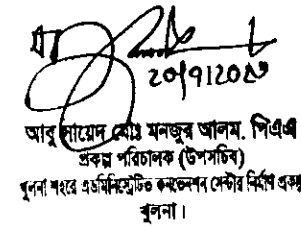 20/9/2023
আবু সায়েদ মোঃ মনজুর আলম. পিএএ
প্রকল্প পরিচালক (উপসচিব)
খুলনা শহরে এডমিনিস্ট্রেটিভ কনভেনশন সেন্টার নির্মাণ প্রকল্প
খুলনা।